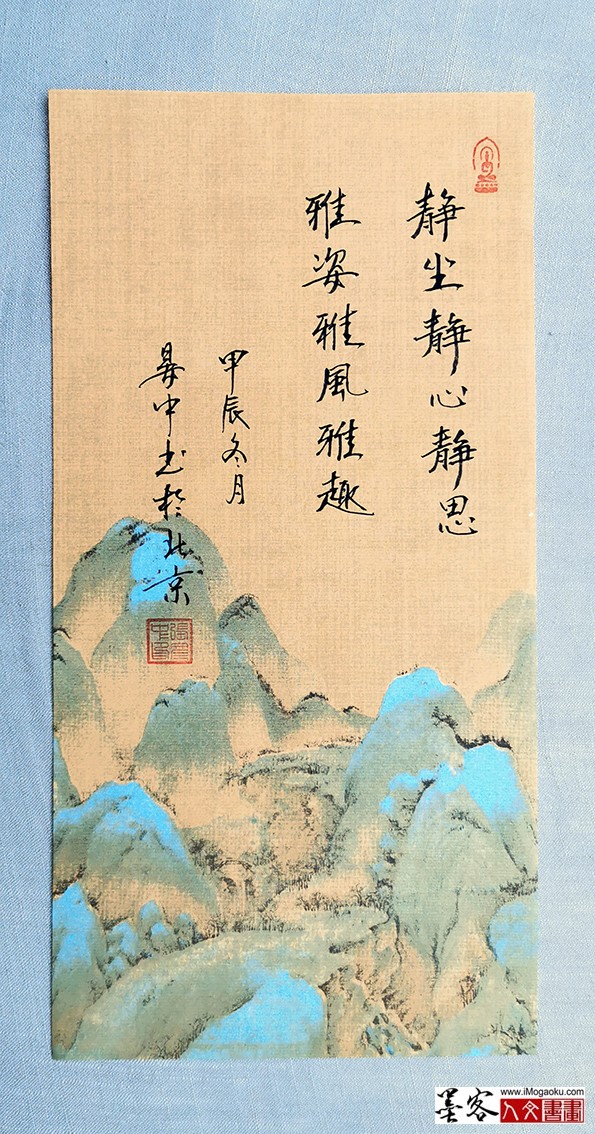 静坐静心静思
雅姿雅風雅趣
甲辰冬月
中书於北京
墨客
www.iMogaoku.com
人文書畫